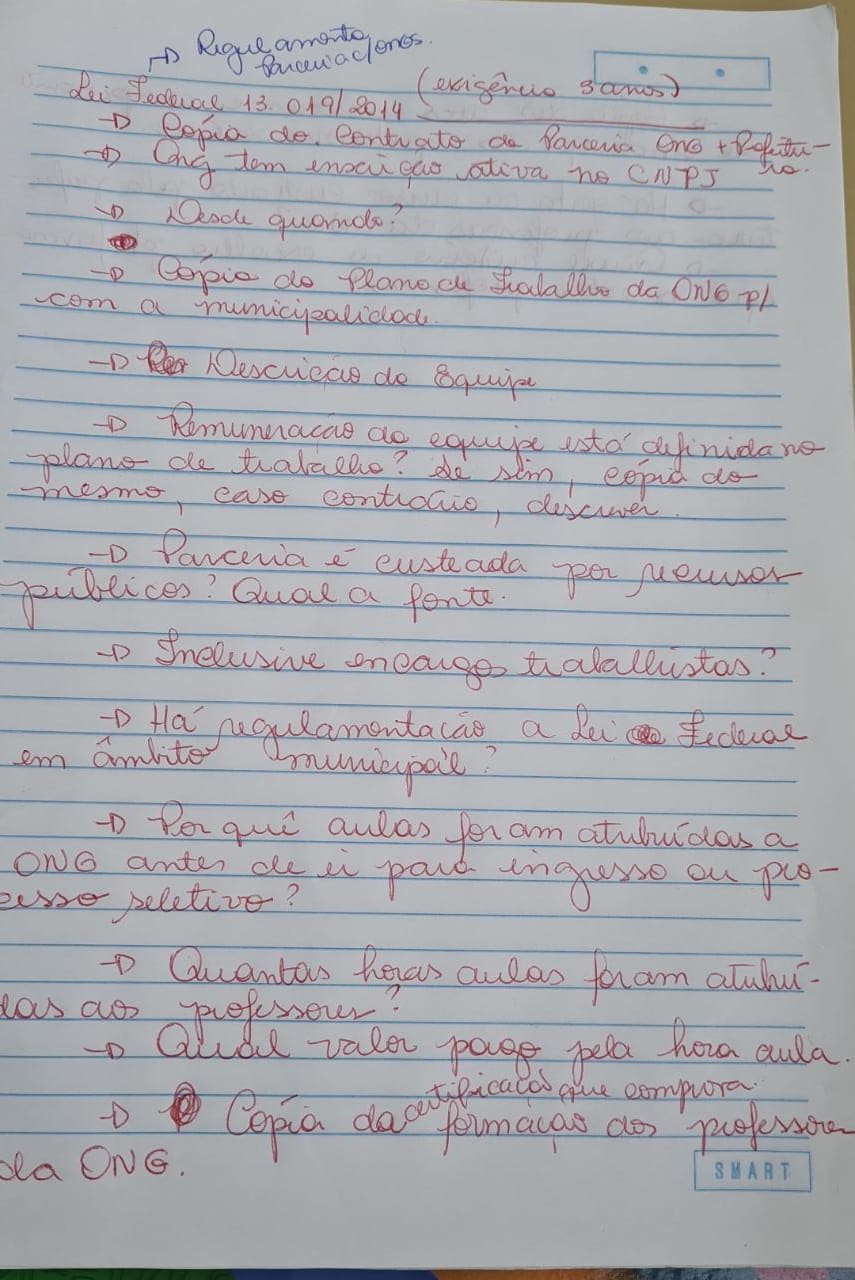 → Regulamenta
parceria c/ ONGs.
Lei Federal 13.019/2014 (exigência 3 anos)
→ Cópia do Contrato de Parceria ONG + Prefeitu-
ra.
→ Ong tem inscrição ativa no CNPJ
→ Desde quando?
→ Cópia do Plano de Trabalho da ONG p/
com a municipalidade.
→ Descrição da Equipe
→ Remuneração da equipe está definida no
plano de trabalho? Se sim, cópia do
mesmo, caso contrário, descrever.
→ Parceria é custeada por recursos
públicos? Qual a fonte.
→ Inclusive encargos trabalhistas?
→ Há regulamentação a Lei Federal
em âmbito municipal?
→ Por quê aulas foram atribuídas a
ONG antes de ir para ingresso ou pro-
cesso seletivo?
→ Quantas horas aulas foram atribuí-
das aos professores?
→ Qual valor pago pela hora aula.
→ Copia da certificação que comprova
formação dos professores
da ONG.
SMART